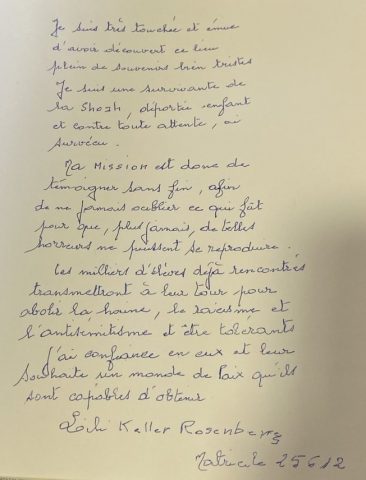 Je suis très touchée et émue
d'avoir découvert ce lieu
plein de souvenirs bien tristes
Je suis une survivante de
la Shoah, déportée enfant
et contre toute attente, ai
survécu.
Ma MISSION est donc de
témoigner sans fin, afin
de ne jamais oublier ce qui fût
pour que, plus jamais, de telles
horreurs ne puissent se reproduire.
Ces milliers d'élèves déjà rencontrés
transmettront à leur tour pour
abolir la haine, le racisme et
l'antisémitisme et être tolérants
J'ai confiance en eux et leur
souhaite un monde de Paix qu'ils
sont capables d'obtenir
Lili Keller Rosenberg
Matricule 25612